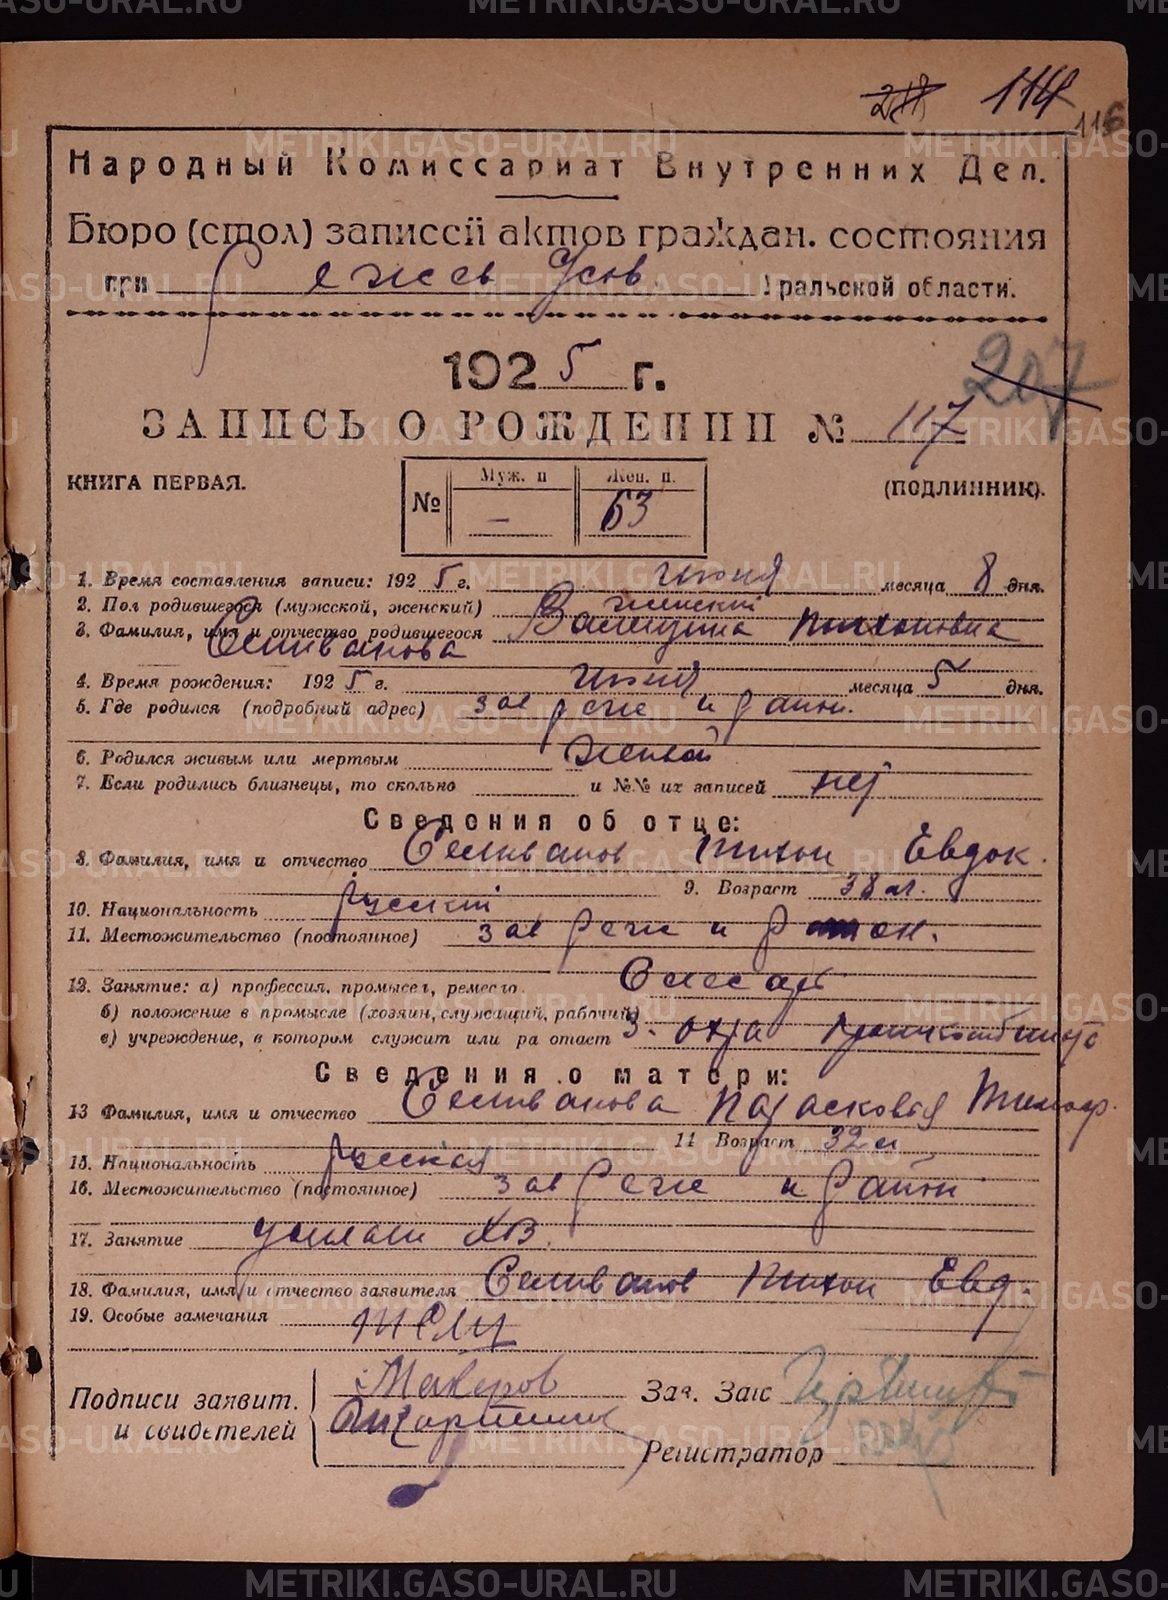 114
116
Народный Комиссариат Внутренних Дел.
Бюро (стол) записей актов граждан. состояния
при Уральской области.
1925 г.
207
ЗАПИСЬ О РОЖДЕНИИ № 117
КНИГА ПЕРВАЯ.
(ПОДЛИННИК).
№ Муж. п Жен. п.
— 63
1. Время составления записи: 1925 г. июня месяца 8 дня.
2. Пол родившегося (мужской, женский) женский
3. Фамилия, имя и отчество родившегося Валентина Тихоновна
Селиванова
4. Время рождения: 1925 г. июня месяца 5 дня.
5. Где родился (подробный адрес) зав Реже и район.
6. Родился живым или мертвым живой
7. Если родились близнецы, то сколько и №№ их записей нет
Сведения об отце:
8. Фамилия, имя и отчество Селиванов Тихон Евдок.
9. Возраст 38 л.
10. Национальность русский
11. Местожительство (постоянное) зав Реже и район.
12. Занятие: а) профессия, промысел, ремесло. Слесарь
б) положение в промысле (хозяин, служащий, рабочий)
в) учреждение, в котором служит или работает
Сведения о матери:
13 Фамилия, имя и отчество Селиванова Парасковья Тимоф.
14 Возраст 32 л
15. Национальность русская
16. Местожительство (постоянное) зав Реже и район
17. Занятие
18. Фамилия, имя и отчество заявителя Селиванов Тихон Евд.
19. Особые замечания
Подписи заявит. и свидетелей
Зав. Загс
Регистратор
METRIKI.GASO-URAL.RU